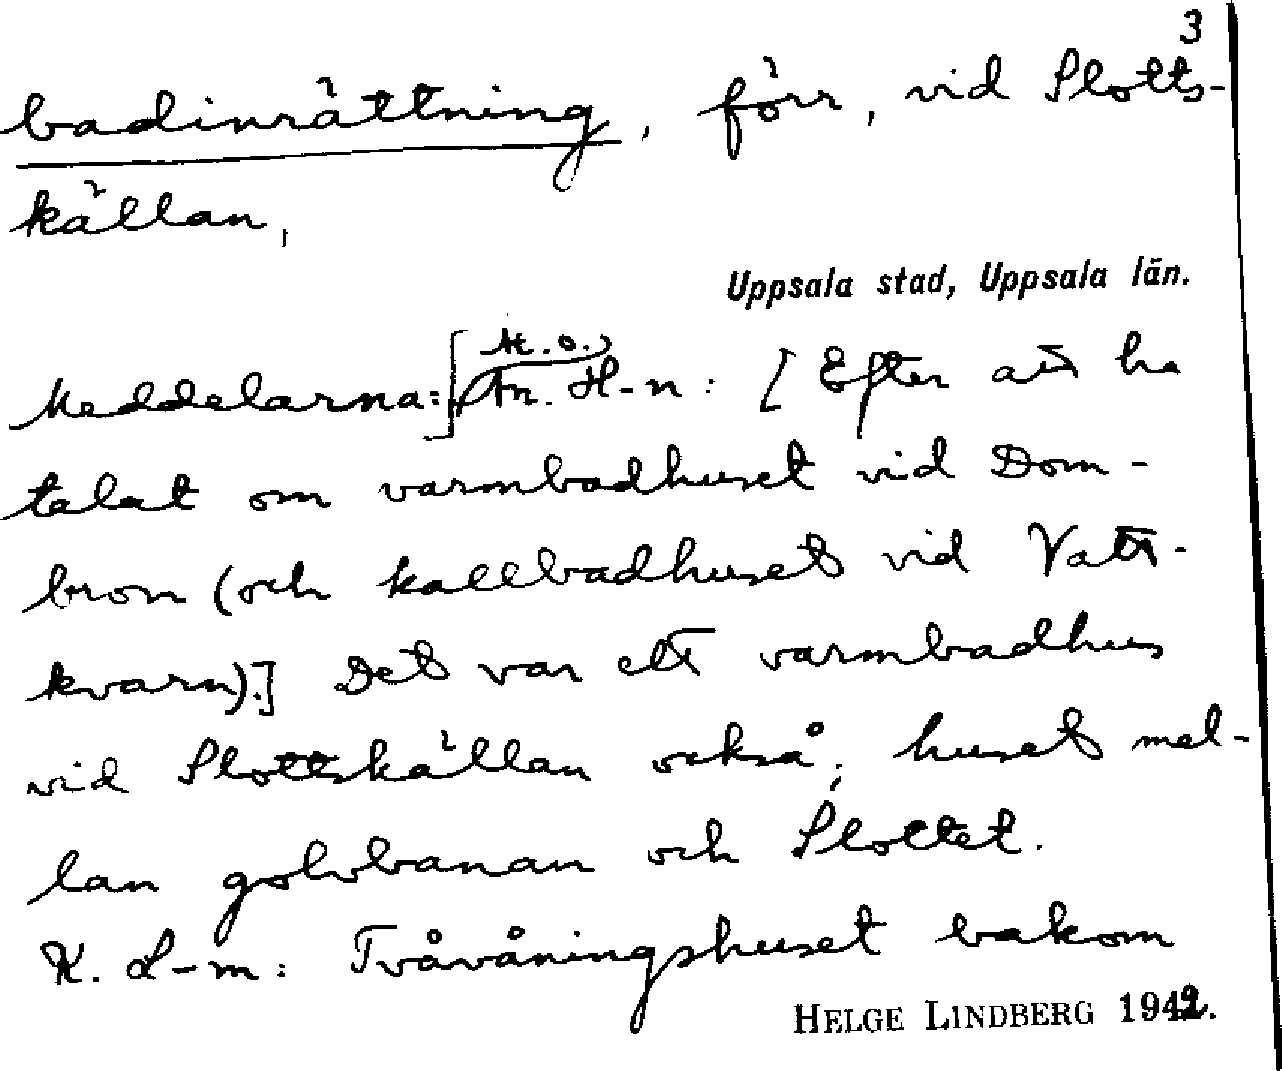 3
badinrättning, förr, vid Slotts-
källan,
Uppsala stad, Uppsala län.
M.O.
Meddelarna: An. H-n: [Efter att ha
talat om varmbadhuset vid Dom-
bron (och kallbadhuset vid Vatt-
kvarn).] Det var ett varmbadhus
vid Slottskällan också; huset mel-
lan golvbanan och Slottet.
K. L-m: Tvåvåningshuset bakom
HELGE LINDBERG 1942.